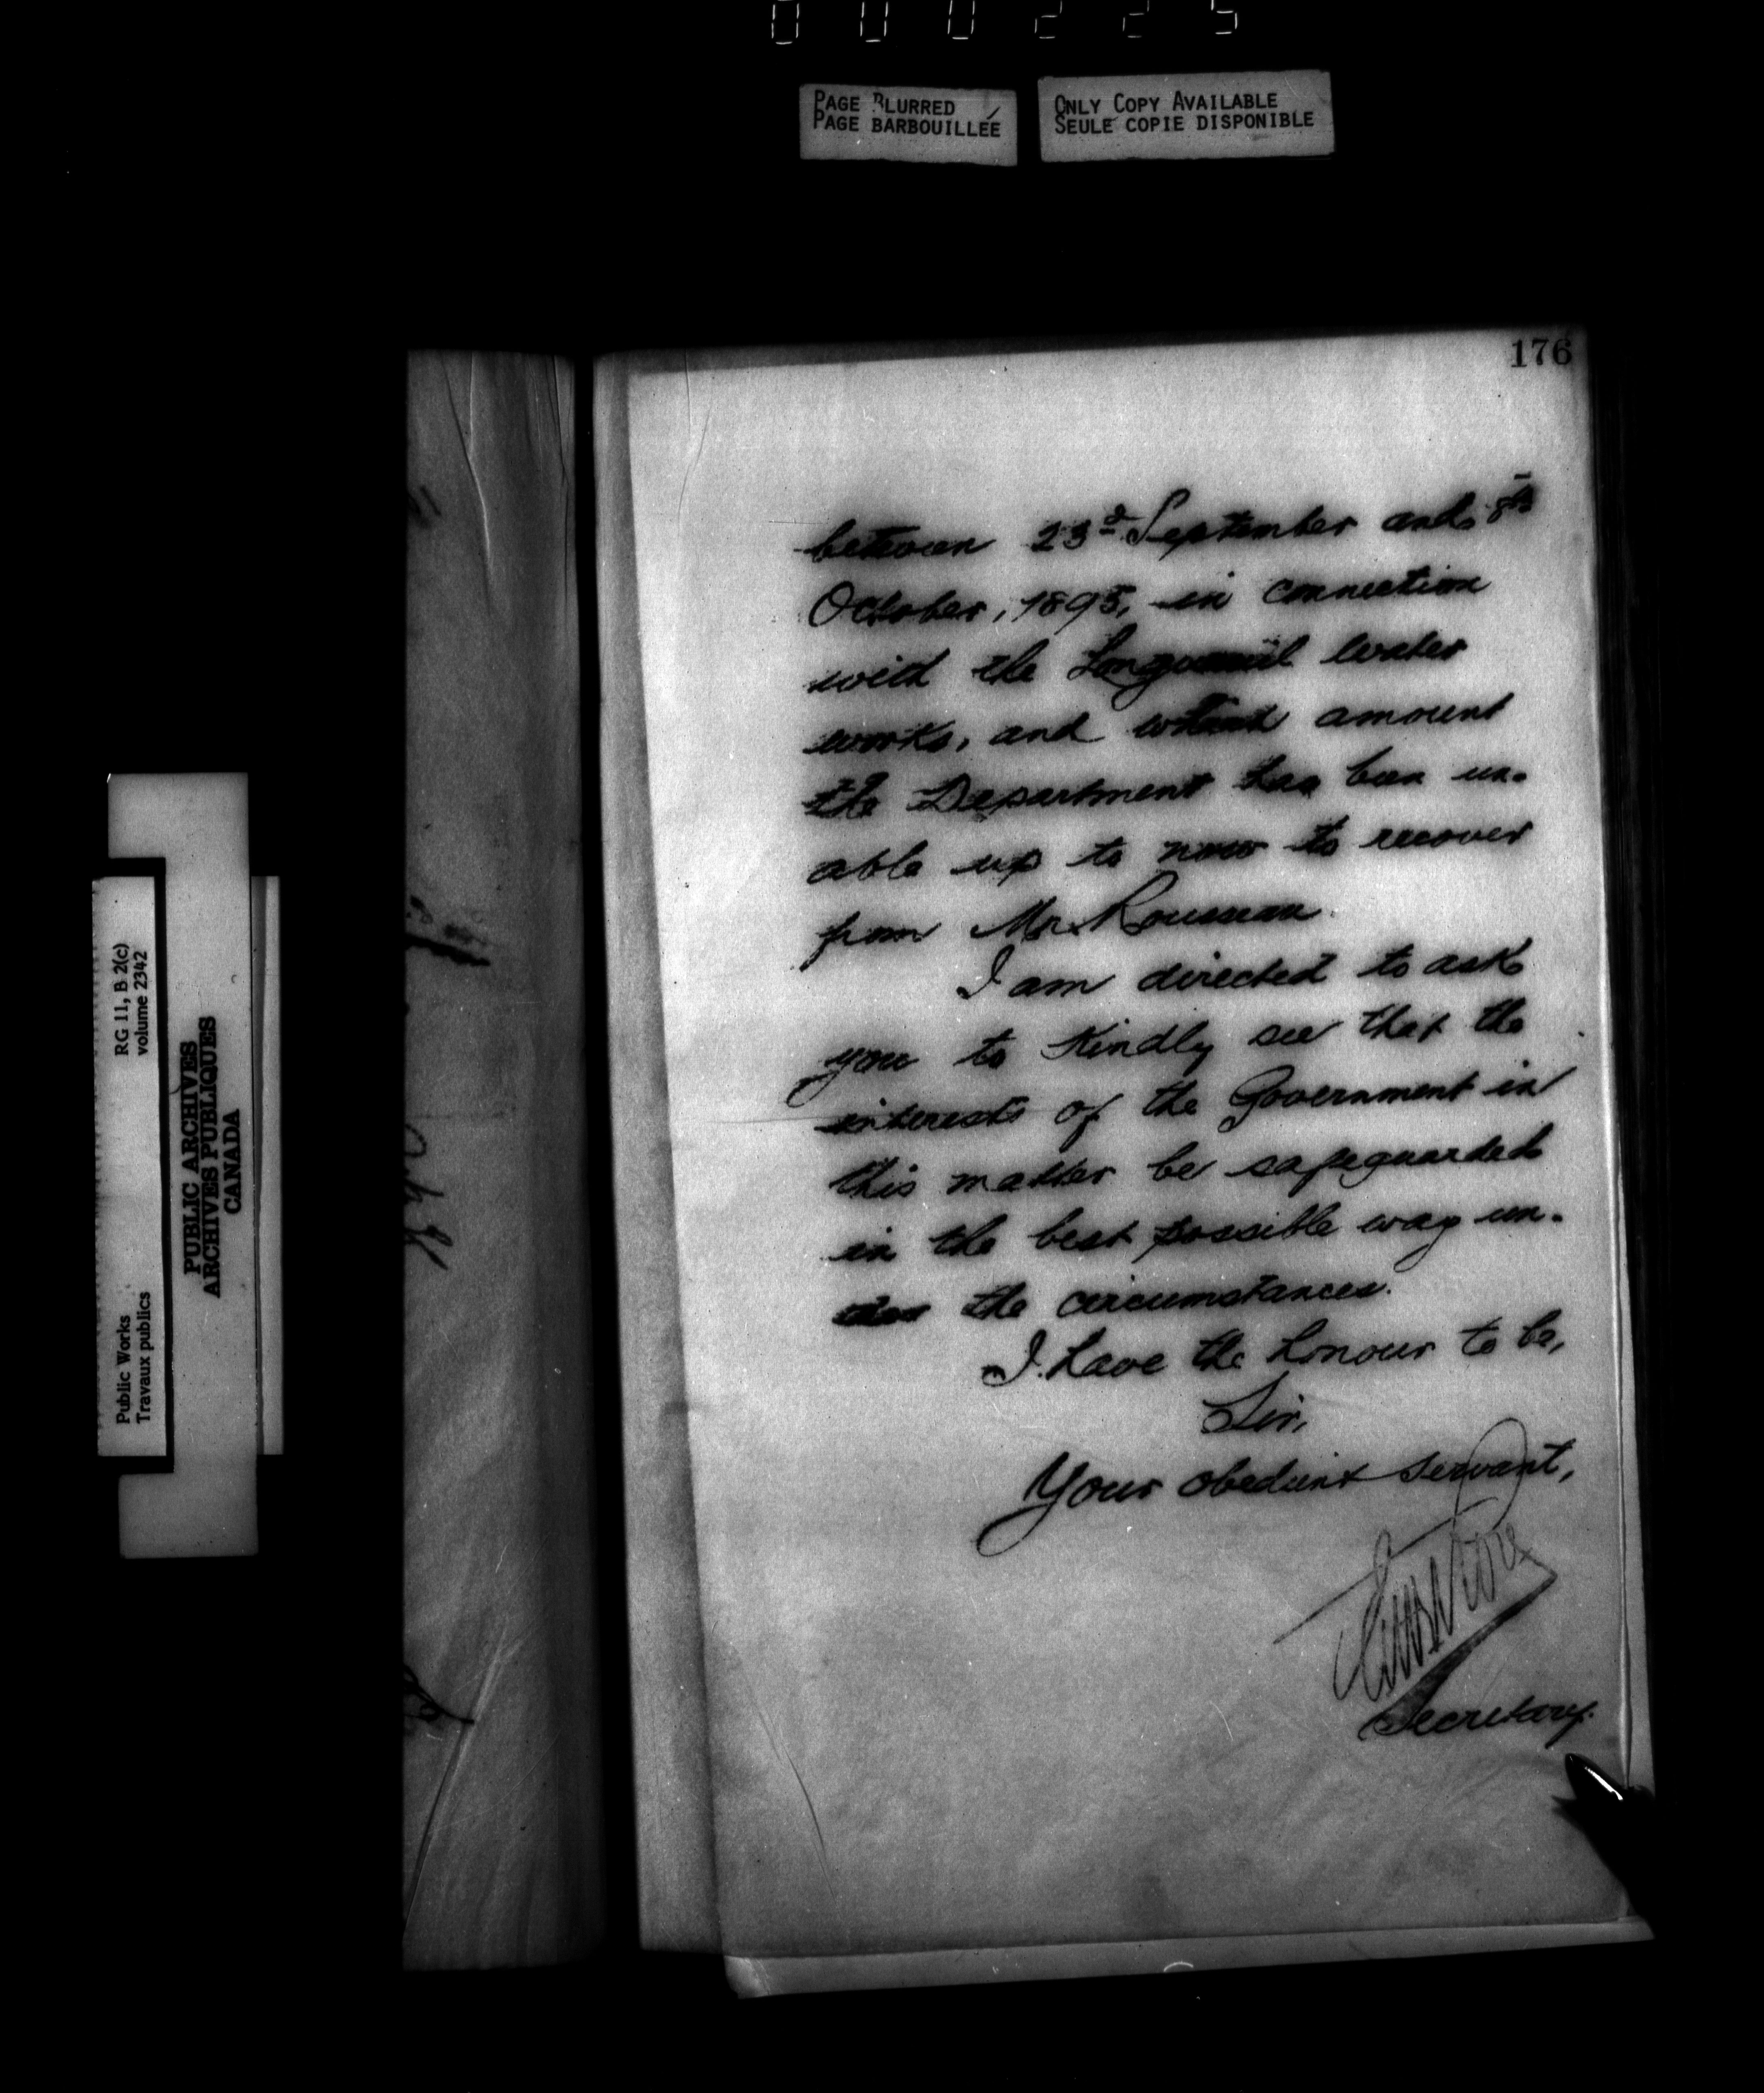 000225
PAGE BLURRED
PAGE BARBOUILLÉE
ONLY COPY AVAILABLE
SEULE COPIE DISPONIBLE
176
between 23d September and 8th
October, 1895, in connection
with the Longueuil water
works, and which amount
the Department has been un-
able up to now to recover
from Mr. Rousseau.
I am directed to ask
you to kindly see that the
interests of the Government in
this matter be safeguarded
in the best possible way un-
der the circumstances.
I have the honour to be,
Sir,
Your obedient servant,
Secretary.
RG 11, B 2(c)
volume 2342
Public Works
Travaux publics
PUBLIC ARCHIVES
ARCHIVES PUBLIQUES
CANADA